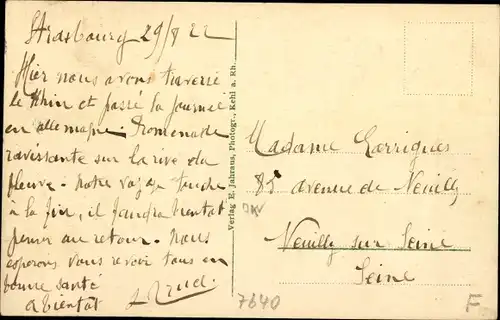 Strasbourg 29/8 22
Hier nous avons traversé
le Rhin et passé la journée
en allemagne. Promenade
ravissante sur la rive du
fleuve - notre voyage touche
à la fin, il faudra bientôt
penser au retour. Nous
espérons vous revoir tous en
bonne santé
a bientôt
Verlag E. Jahraus, Photogr., Kehl a. Rh.
Madame Larrigues
85 avenue de Neuilly
Neuilly sur Seine
Seine
7640
F